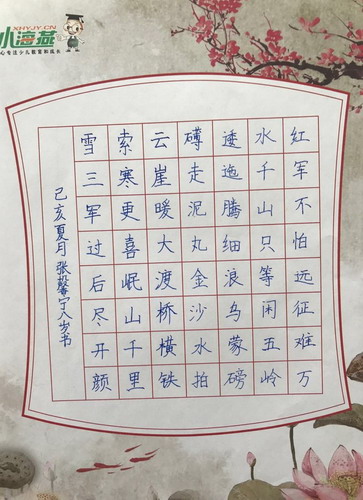 XHYJY.CN
小海燕
心专注少儿教育和成长
红军不怕远征难万
水千山只等闲五岭
逶迤腾细浪乌蒙磅
礴走泥丸金沙水拍
云崖暖大渡桥横铁
索寒更喜岷山千里
雪三军过后尽开颜
己亥夏月张馨宁八岁书